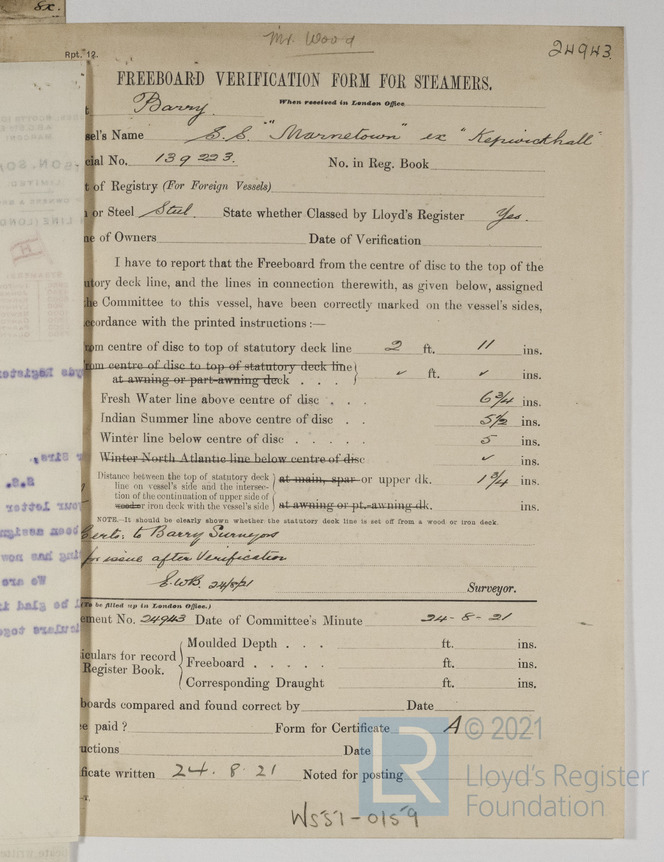 sx.
Mr. Wood
Rpt. 12.
24943.
FREEBOARD VERIFICATION FORM FOR STEAMERS.
t Barry. When received in London Office
sel's Name S.S. "Marnetown" ex "Kepwickhall"
cial No. 139223. No. in Reg. Book
t of Registry (For Foreign Vessels)
or Steel Steel. State whether Classed by Lloyd's Register Yes.
ne of Owners Date of Verification
I have to report that the Freeboard from the centre of disc to the top of the
utory deck line, and the lines in connection therewith, as given below, assigned
the Committee to this vessel, have been correctly marked on the vessel's sides,
ccordance with the printed instructions :—
rom centre of disc to top of statutory deck line 2 ft. 11 ins.
rom centre of disc to top of statutory deck line
at awning or part-awning deck . . . ✓ ft. ✓ ins.
Fresh Water line above centre of disc . . . 6 3/4 ins.
Indian Summer line above centre of disc . . 5 1/2 ins.
Winter line below centre of disc . . . . . 5 ins.
Winter North Atlantic line below centre of disc ✓ ins.
Distance between the top of statutory deck
line on vessel's side and the intersec-
tion of the continuation of upper side of
wood or iron deck with the vessel's side
at main, spar or upper dk. 1 3/4 ins.
at awning or pt.-awning dk. ins.
NOTE.—It should be clearly shown whether the statutory deck line is set off from a wood or iron deck.
Certs: to Barry Surveyors
for issue after Verification
E.W.B. 24/8/21 Surveyor.
(To be filled up in London Office.)
ement No. 24943 Date of Committee's Minute 24-8-21
culars for record
Register Book.
Moulded Depth . . . ft. ins.
Freeboard . . . . . ft. ins.
Corresponding Draught ft. ins.
boards compared and found correct by Date
e paid ? Form for Certificate A
uctions Date
ficate written 24.8.21 Noted for posting
W551-0159
© 2021
LR
Lloyd's Register
Foundation